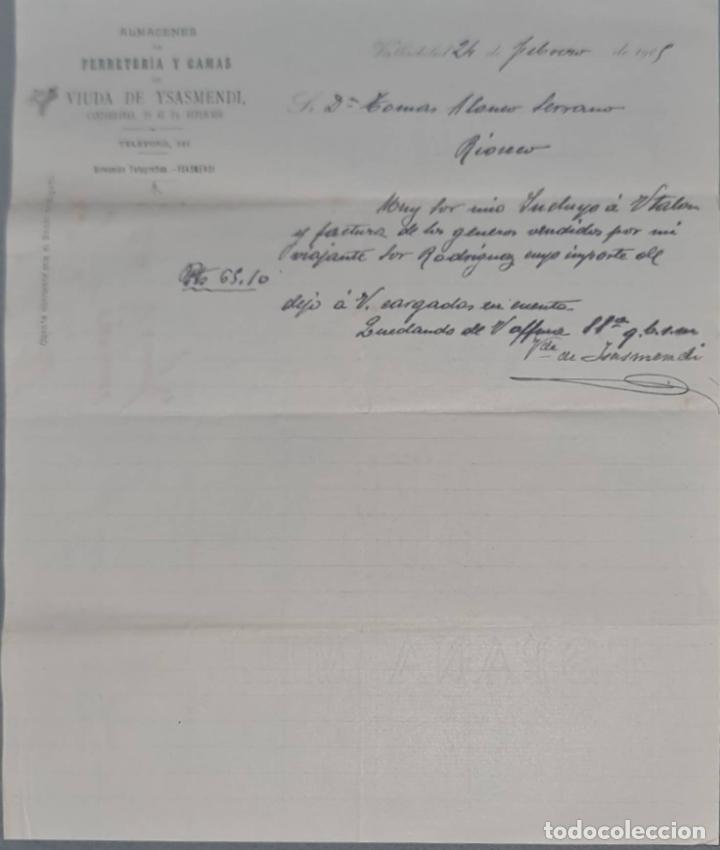 ALMACENES
DE
FERRETERÍA Y CAMAS
DE
VIUDA DE YSASMENDI,
TELÉFONO, 141
Dirección Telegráfica.—YSASMENDI
Valladolid 24 de Febrero de 1905
S. Dn Tomas Alonso Serrano
Rioseco
Muy Sor mio Incluyo á V talon
y factura de los generos vendidos por mi
viajante Sor Rodriguez cuyo importe de
Pts 65.10
dejo á V. cargadas en cuenta.
Quedando de V affma SSª q. b. s. m
Vda de Isasmendi
todocoleccion